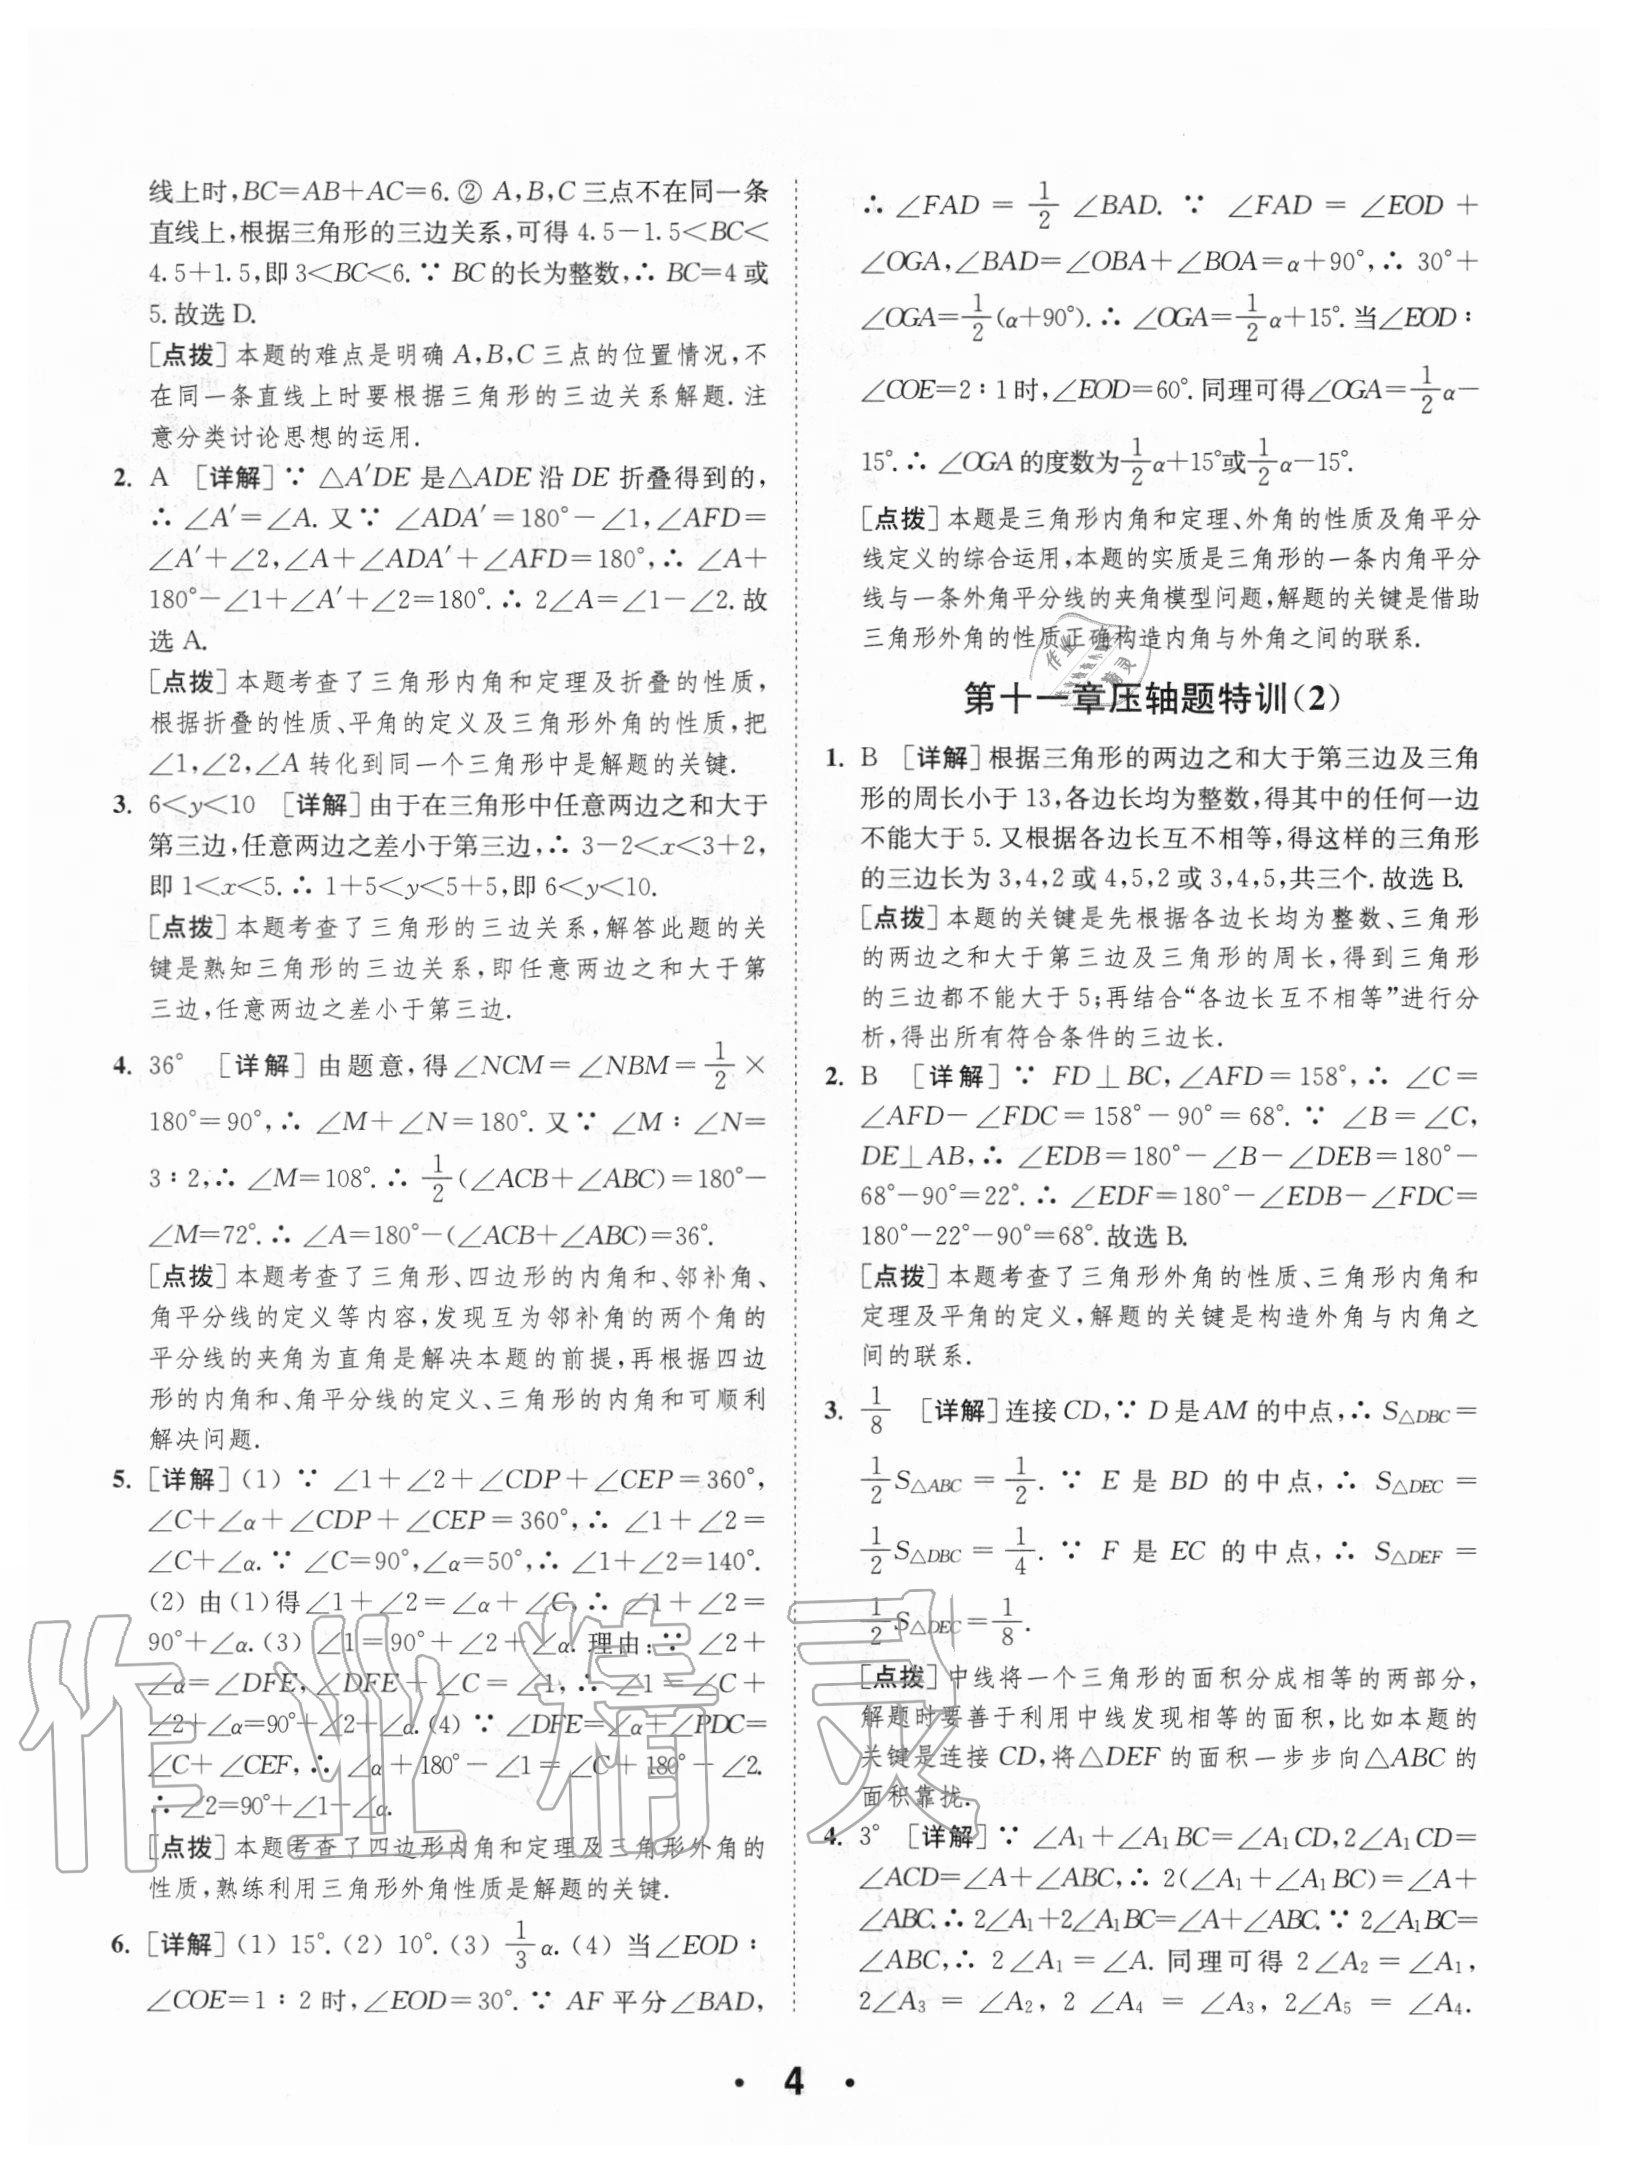 线上时,BC=AB+AC=6.② A,B,C三点不在同一条
直线上,根据三角形的三边关系,可得 4.5-1.5<BC<
4.5+1.5,即 3<BC<6.∵ BC的长为整数,∴ BC=4或
5.故选D.
[点拨]本题的难点是明确A,B,C三点的位置情况,不
在同一条直线上时要根据三角形的三边关系解题.注
意分类讨论思想的运用.
2. A [详解]∵ △A′DE是△ADE沿DE折叠得到的,
∴ ∠A′=∠A.又∵ ∠ADA′=180°-∠1,∠AFD=
∠A′+∠2,∠A+∠ADA′+∠AFD=180°,∴ ∠A+
180°-∠1+∠A′+∠2=180°.∴ 2∠A=∠1-∠2.故
选A.
[点拨]本题考查了三角形内角和定理及折叠的性质,
根据折叠的性质、平角的定义及三角形外角的性质,把
∠1,∠2,∠A转化到同一个三角形中是解题的关键.
3. 6<y<10 [详解]由于在三角形中任意两边之和大于
第三边,任意两边之差小于第三边,∴ 3-2<x<3+2,
即1<x<5.∴ 1+5<y<5+5,即6<y<10.
[点拨]本题考查了三角形的三边关系,解答此题的关
键是熟知三角形的三边关系,即任意两边之和大于第
三边,任意两边之差小于第三边.
4. 36° [详解]由题意,得∠NCM=∠NBM=1/2×
180°=90°,∴ ∠M+∠N=180°.又∵ ∠M∶∠N=
3∶2,∴ ∠M=108°.∴ 1/2(∠ACB+∠ABC)=180°-
∠M=72°.∴ ∠A=180°-(∠ACB+∠ABC)=36°.
[点拨]本题考查了三角形、四边形的内角和、邻补角、
角平分线的定义等内容,发现互为邻补角的两个角的
平分线的夹角为直角是解决本题的前提,再根据四边
形的内角和、角平分线的定义、三角形的内角和可顺利
解决问题.
5. [详解](1) ∵ ∠1+∠2+∠CDP+∠CEP=360°,
∠C+∠α+∠CDP+∠CEP=360°,∴ ∠1+∠2=
∠C+∠α.∵ ∠C=90°,∠α=50°,∴ ∠1+∠2=140°.
(2) 由(1)得∠1+∠2=∠α+∠C,∴ ∠1+∠2=
90°+∠α.(3) ∠1=90°+∠2+∠α.理由:∵ ∠2+
∠α=∠DFE,∠DFE+∠C=∠1,∴ ∠1=∠C+
∠2+∠α=90°+∠2+∠α.(4) ∵ ∠DFE=∠α+∠PDC=
∠C+∠CEF,∴ ∠α+180°-∠1=∠C+180°-∠2.
∴ ∠2=90°+∠1-∠α.
[点拨]本题考查了四边形内角和定理及三角形外角的
性质,熟练利用三角形外角性质是解题的关键.
6. [详解](1) 15°.(2) 10°.(3) 1/3α.(4) 当∠EOD∶
∠COE=1∶2时,∠EOD=30°.∵ AF平分∠BAD,
∴ ∠FAD=1/2∠BAD.∵ ∠FAD=∠EOD+
∠OGA,∠BAD=∠OBA+∠BOA=α+90°,∴ 30°+
∠OGA=1/2(α+90°).∴ ∠OGA=1/2α+15°.当∠EOD∶
∠COE=2∶1时,∠EOD=60°.同理可得∠OGA=1/2α-
15°.∴ ∠OGA的度数为1/2α+15°或1/2α-15°.
[点拨]本题是三角形内角和定理、外角的性质及角平分
线定义的综合运用,本题的实质是三角形的一条内角平分
线与一条外角平分线的夹角模型问题,解题的关键是借助
三角形外角的性质正确构造内角与外角之间的联系.
第十一章压轴题特训(2)
1. B [详解]根据三角形的两边之和大于第三边及三角
形的周长小于13,各边长均为整数,得其中的任何一边
不能大于5.又根据各边长互不相等,得这样的三角形
的三边长为3,4,2或4,5,2或3,4,5,共三个.故选B.
[点拨]本题的关键是先根据各边长均为整数、三角形
的两边之和大于第三边及三角形的周长,得到三角形
的三边都不能大于5;再结合“各边长互不相等”进行分
析,得出所有符合条件的三边长.
2. B [详解]∵ FD⊥BC,∠AFD=158°,∴ ∠C=
∠AFD-∠FDC=158°-90°=68°.∵ ∠B=∠C,
DE⊥AB,∴ ∠EDB=180°-∠B-∠DEB=180°-
68°-90°=22°.∴ ∠EDF=180°-∠EDB-∠FDC=
180°-22°-90°=68°.故选B.
[点拨]本题考查了三角形外角的性质、三角形内角和
定理及平角的定义,解题的关键是构造外角与内角之
间的联系.
3. 1/8 [详解]连接CD,∵ D是AM的中点,∴ S△DBC=
1/2S△ABC=1/2.∵ E是BD的中点,∴ S△DEC=
1/2S△DBC=1/4.∵ F是EC的中点,∴ S△DEF=
1/2S△DEC=1/8.
[点拨]中线将一个三角形的面积分成相等的两部分,
解题时要善于利用中线发现相等的面积,比如本题的
关键是连接CD,将△DEF的面积一步步向△ABC的
面积靠拢.
4. 3° [详解]∵ ∠A₁+∠A₁BC=∠A₁CD,2∠A₁CD=
∠ACD=∠A+∠ABC,∴ 2(∠A₁+∠A₁BC)=∠A+
∠ABC.∴ 2∠A₁+2∠A₁BC=∠A+∠ABC.∵ 2∠A₁BC=
∠ABC,∴ 2∠A₁=∠A.同理可得2∠A₂=∠A₁,
2∠A₃=∠A₂,2∠A₄=∠A₃,2∠A₅=∠A₄.
· 4 ·
作业精灵
作业精灵